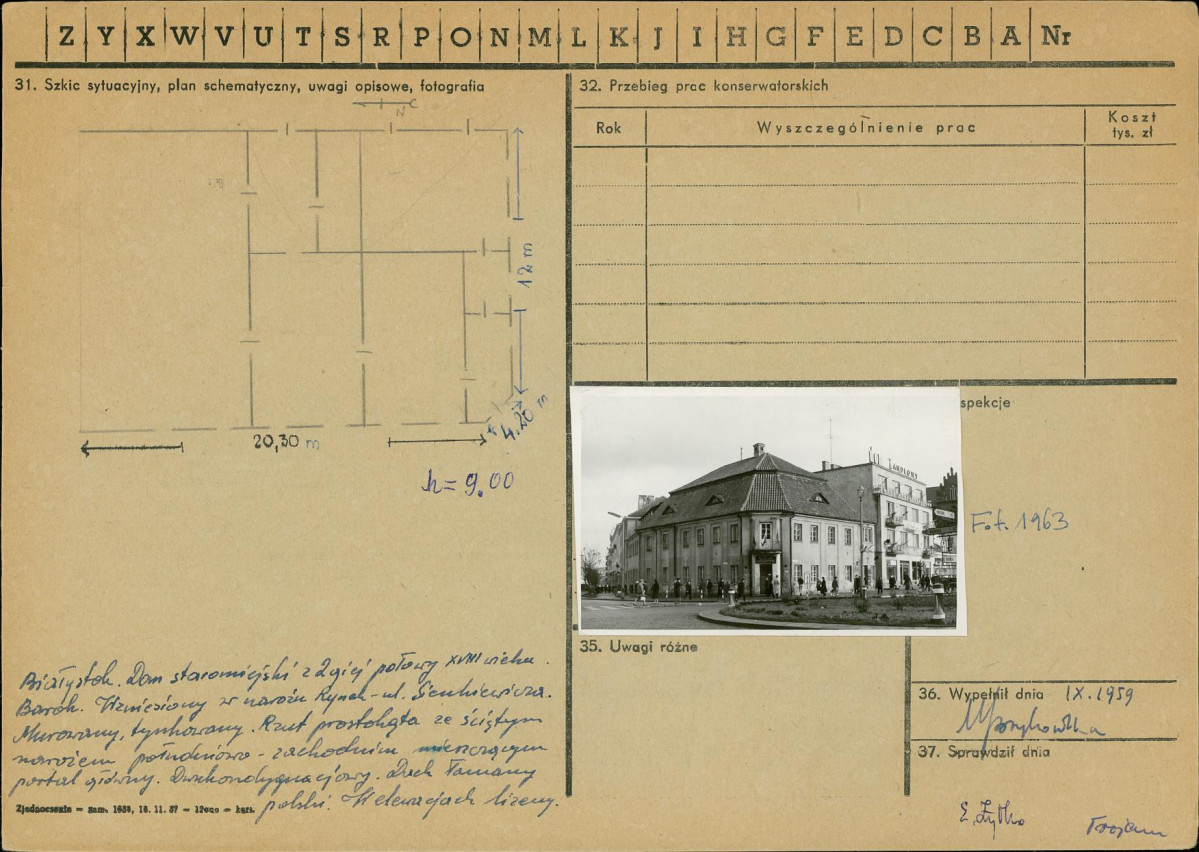 Z Y X W V U T S R P O N M L K J I H G F E D C B A Nr
31. Szkic sytuacyjny, plan schematyczny, uwagi opisowe, fotografia
N
12 m
4.20 m
20,30 m
h = 9.00
Białystok. Dom staromiejski z 2giej połowy XVIII wieku.
Barok. Wzniesiony w narożu Rynek - ul. Sienkiewicza.
Murowany, tynkowany. Rzut prostokąta ze ściętym
narożem południowo - zachodnim mieszczącym
portal główny. Dwukondygnacjowy. Dach łamany
polski. W elewacjach lizeny.
Zjednoczenie — zam. 1638, 16. 11. 57 — 12000 — kart.
32. Przebieg prac konserwatorskich
Rok Wyszczególnienie prac Koszt tys. zł
spekcje
Fot. 1963
35. Uwagi różne
36. Wypełnił dnia IX.1959
37. Sprawdził dnia
E. Żytko